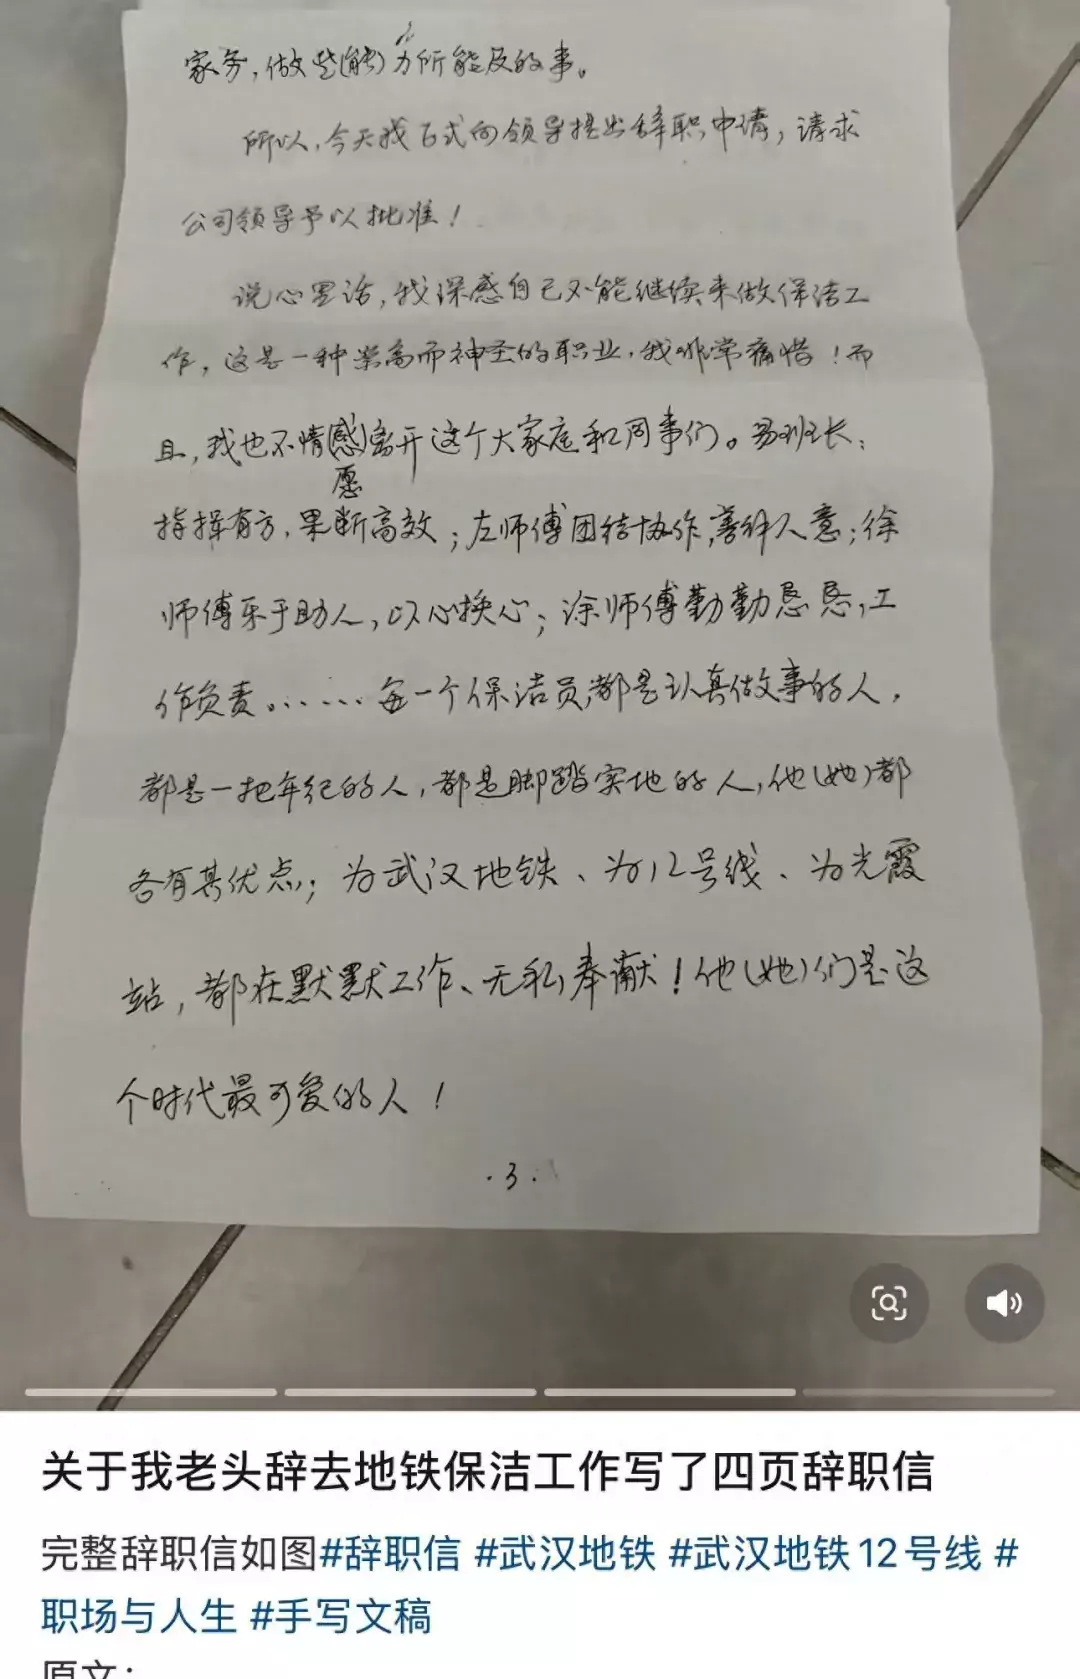 家务，做些(能)力所能及的事。
所以，今天我正式向领导提出辞职申请，请求
公司领导予以批准！
说心里话，我深感自己不能继续来做保洁工
作，这是一种崇高而神圣的职业，我非常痛惜！而
且，我也不情(感)离开这个大家庭和同事们。易班长：
愿
指挥有方，果断高效；左师傅团结协作，善解人意；徐
师傅乐于助人，以心换心；涂师傅勤勤恳恳，工
作负责。……每一个保洁员，都是认真做事的人，
都是一把年纪的人，都是脚踏实地的人，他(她)都
各有其优点；为武汉地铁、为12号线、为光霞
站，都在默默工作、无私奉献！他(她)们是这
个时代最可爱的人！
·3·
关于我老头辞去地铁保洁工作写了四页辞职信
完整辞职信如图#辞职信 #武汉地铁 #武汉地铁12号线 #
职场与人生 #手写文稿
原文：